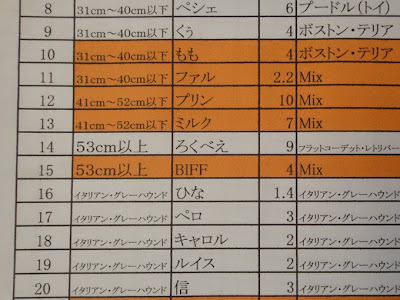 8 31cm～40cm以下 ペシェ 6 プードル(トイ)
9 31cm～40cm以下 くぅ 4 ボストン・テリア
10 31cm～40cm以下 もも 4 ボストン・テリア
11 31cm～40cm以下 ファル 2.2 Mix
12 41cm～52cm以下 プリン 10 Mix
13 41cm～52cm以下 ミルク 7 Mix
14 53cm以上 ろくべえ 9 フラットコーデット・レトリバー
15 53cm以上 BIFF 4 Mix
16 イタリアン・グレーハウンド ひな 1.4 イタリアン・グレーハウンド
17 イタリアン・グレーハウンド ペロ 3 イタリアン・グレーハウンド
18 イタリアン・グレーハウンド キャロル 2 イタリアン・グレーハウンド
19 イタリアン・グレーハウンド ルイス 2 イタリアン・グレーハウンド
20 イタリアン・グレーハウンド 信 3 イタリアン・グレーハウンド